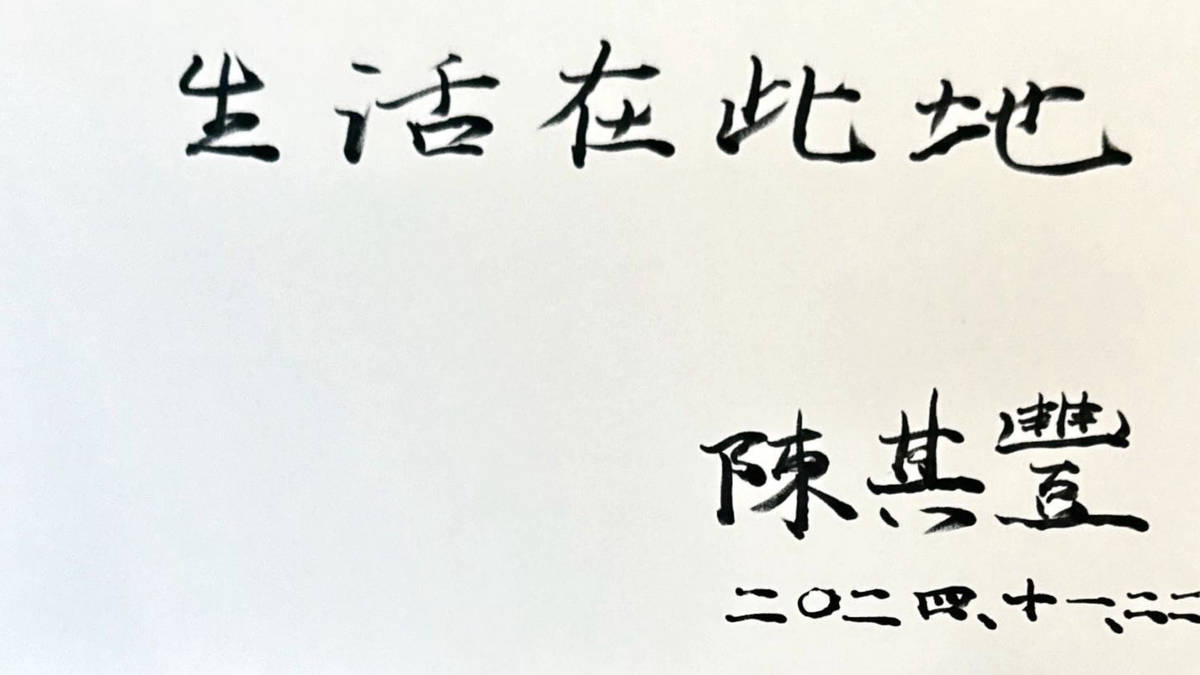 生活在此地
陳其豐
二〇二四、十一、二二